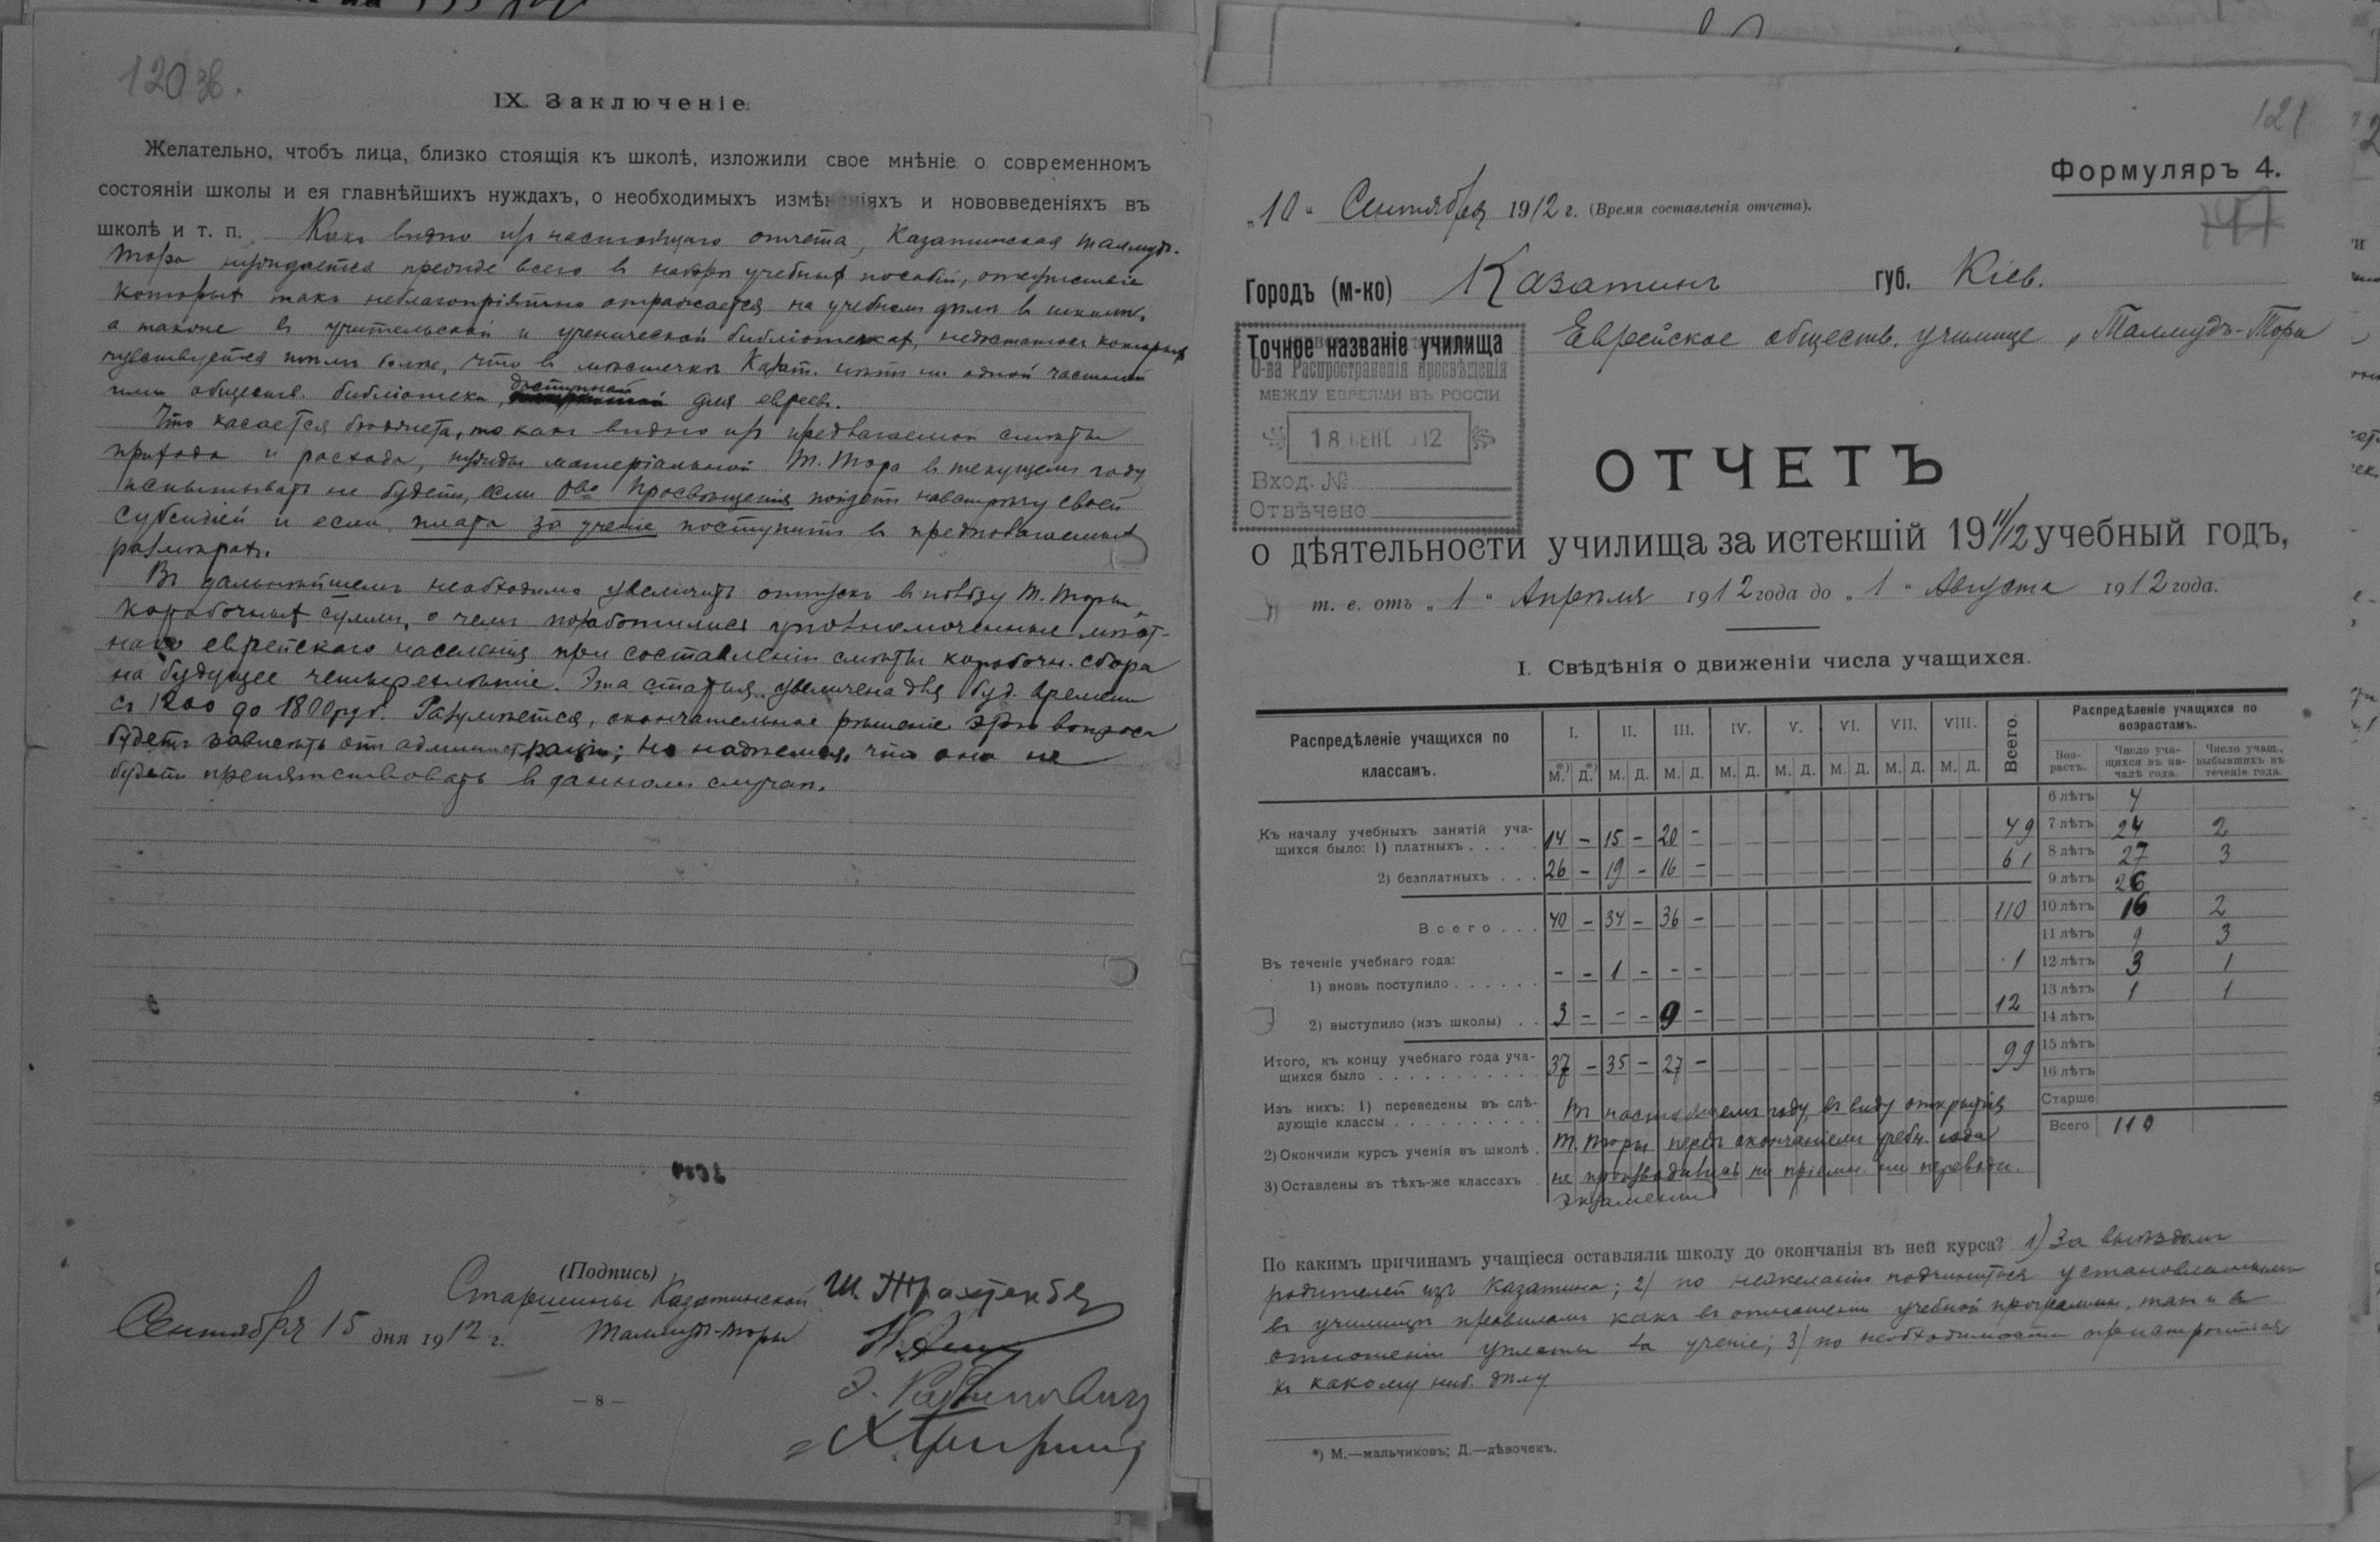 120 зв.
IX. Заключеніе.
Желательно, чтобъ лица, близко стоящія къ школѣ, изложили свое мнѣніе о современномъ
состояніи школы и ея главнѣйшихъ нуждахъ, о необходимыхъ измѣненіяхъ и нововведеніяхъ въ
школѣ и т. п. Какъ видно изъ настоящаго отчета, Казатинская талмудъ-
тора нуждается прежде всего в наборѣ учебныхъ пособій, отсутствіе
которыхъ такъ неблагопріятно отражается на учебномъ дѣлѣ в школѣ,
а также в учительской и ученической библіотекахъ, недостатокъ которыхъ
чувствуется тѣмъ болѣе, что в мѣстечкѣ Казат. нѣтъ ни одной частной
или обществ. библіотеки, доступной для евреевъ.
Что касается бюджета, то какъ видно изъ предлагаемой смѣты
прихода и расхода, нужды матеріальной Т. Тора в текущемъ году
испытывать не будетъ, если О-во Просвѣщенія пойдетъ навстрѣчу своей
субсидіей и если плата за ученіе поступитъ в предполагаемыхъ
размѣрахъ.
Въ дальнѣйшемъ необходимо увеличить отпускъ в пользу Т. Торы
коробочныхъ суммъ, о чемъ позаботились уполномоченные мѣст-
наго еврейскаго населенія при составленіи смѣты коробочн. сбора
на будущее четырехлѣтіе. Эта статья увеличена для буд. времени
съ 1200 до 1800 руб. Разумѣется, окончательное рѣшеніе этого вопроса
будетъ зависѣть отъ администраціи; но надѣемся, что она не
будетъ препятствовать в данномъ случаѣ.
(Подпись)
Старшины Казатинской
Талмудъ-торы
Сентября 15 дня 1912 г.
Ш. Трахтенбе
— 8 —
121
Формуляръ 4.
„10“ Сентября 1912 г. (Время составленія отчета).
Городъ (м-ко) Казатинъ губ. Кіев.
Точное названіе училища Еврейское обществ. училище „Талмудъ-Тора
О-ва Распространенія Просвѣщенія
МЕЖДУ ЕВРЕЯМИ ВЪ РОССІИ
18 СЕН 1912
Вход. №
Отвѣчено
ОТЧЕТЪ
о дѣятельности училища за истекшій 1911/12 учебный годъ,
т. е. отъ „1“ Апрѣля 1912 года до „1“ Августа 1912 года.
I. Свѣдѣнія о движеніи числа учащихся.
Распредѣленіе учащихся по классамъ. I. II. III. IV. V. VI. VII. VIII. Всего. Распредѣленіе учащихся по возрастамъ.
М.*) Д.*) М. Д. М. Д. М. Д. М. Д. М. Д. М. Д. М. Д. Воз-растъ. Число уча-щихся въ на-чалѣ года. Число учащ., выбывшихъ въ теченіе года.
Къ началу учебныхъ занятій уча-
щихся было: 1) платныхъ . . . . . 14 – 15 – 20 – 49
2) безплатныхъ . . . 26 – 19 – 16 – 61
Всего . . . 40 – 34 – 36 – 110
Въ теченіе учебнаго года:
1) вновь поступило . . . . . . – – 1 – – – 1
2) выступило (изъ школы) . . 3 – – – 9 – 12
Итого, къ концу учебнаго года уча-
щихся было . . . . . . . . . . . 37 – 35 – 27 – 99
Изъ нихъ: 1) переведены въ слѣ-
дующіе классы . . . . . . . . . .
2) Окончили курсъ ученія въ школѣ .
3) Оставлены въ тѣхъ-же классахъ .
Въ настоящемъ году, въ виду открытія
Т. Торы передъ окончаніемъ учебн. года
не производились ни пріемн. ни переводн.
экзамены
6 лѣтъ 4
7 лѣтъ 24 2
8 лѣтъ 27 3
9 лѣтъ 26
10 лѣтъ 16 2
11 лѣтъ 9 3
12 лѣтъ 3 1
13 лѣтъ 1 1
14 лѣтъ
15 лѣтъ
16 лѣтъ
Старше
Всего 110
По какимъ причинамъ учащіеся оставляли школу до окончанія въ ней курса? 1) За выѣздомъ
родителей изъ Казатина; 2) по нежеланію подчиниться установленнымъ
въ училищѣ правиламъ какъ въ отношеніи учебной программы, такъ и въ
отношеніи уплаты за ученіе; 3) по необходимости пристроиться
къ какому ниб. дѣлу.
*) М.—мальчиковъ; Д.—дѣвочекъ.